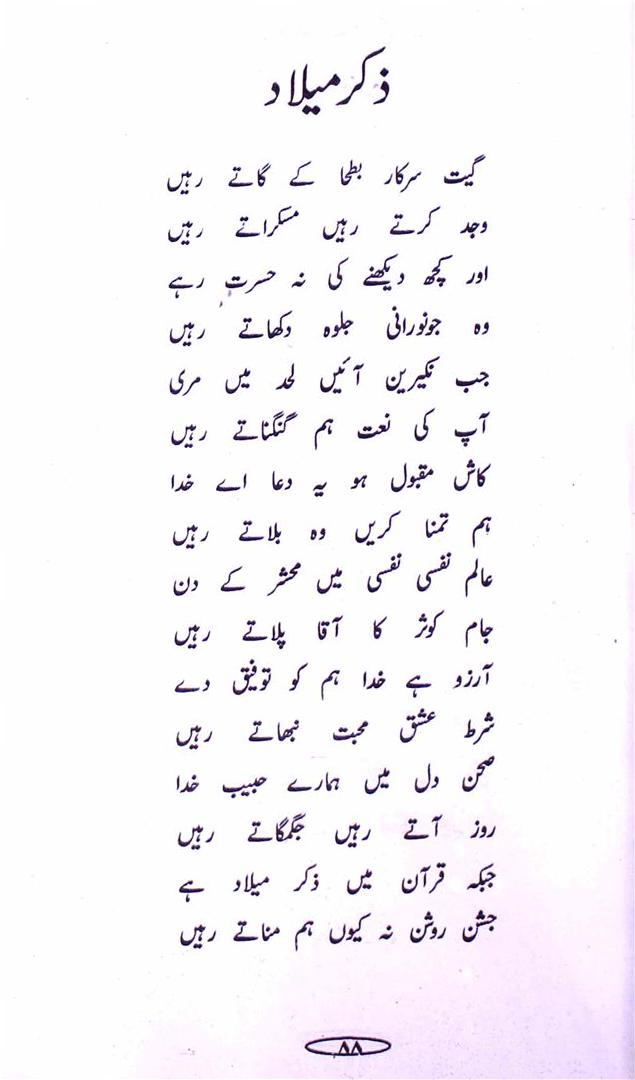 ذکر میلاد
گیت سرکار بطحا کے گاتے رہیں
وجد کرتے رہیں مسکراتے رہیں
اور کچھ دیکھنے کی نہ حسرت رہے
وہ جو نورانی جلوہ دکھاتے رہیں
جب نکیرین آئیں لحد میں مری
آپ کی نعت ہم گنگناتے رہیں
کاش مقبول ہو یہ دعا اے خدا
ہم تمنا کریں وہ بلاتے رہیں
عالم نفسی نفسی میں محشر کے دن
جام کوثر کا آقا پلاتے رہیں
آرزو ہے خدا ہم کو توفیق دے
شرط عشق محبت نبھاتے رہیں
صحن دل میں ہمارے حبیب خدا
روز آتے رہیں جگمگاتے رہیں
جبکہ قرآن میں ذکر میلاد ہے
جشن روشن نہ کیوں ہم مناتے رہیں
۸۸